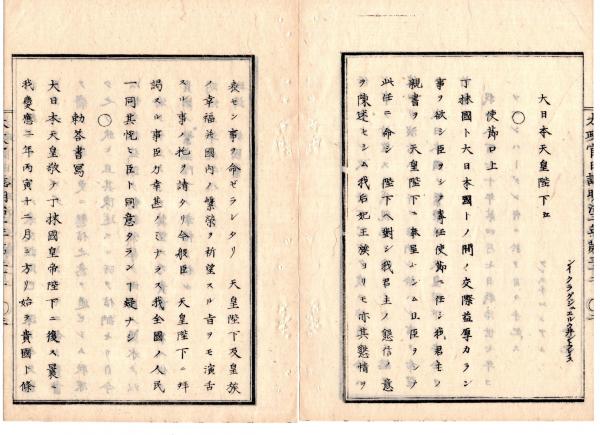 大日本天皇陛下ニ
使節口上
丁抹國ト大日本國トノ間ノ交際益厚カラン
事ヲ欲シ臣ヲシテ專任使節ニ任シ我君主ノ
親書ヲ 天皇陛下ニ奉呈セシム且臣ヲシテ
此任ニ命シ 陛下ヘ對シ我君主ノ懇信ノ意
ヲ陳述セシム我后妃王族ヨリモ亦其懇情ヲ
表セン事ヲ命ゼラレタリ 天皇陛下及皇族
ノ幸福并國内ノ繁榮ヲ祈望スル旨ヲモ演舌
スル事ノ允ヲ請タリ今般臣 天皇陛下ニ拜
謁スル事臣ガ幸甚ノミナラス我全國ノ人民
一同其悦ヒ臣ト同意タラン「疑ナシ
○
勅答書寫
大日本天皇敬テ丁抹國皇帝陛下ニ復ス曩ニ
我慶應二年丙寅十二月三方リ始テ貴國ト條